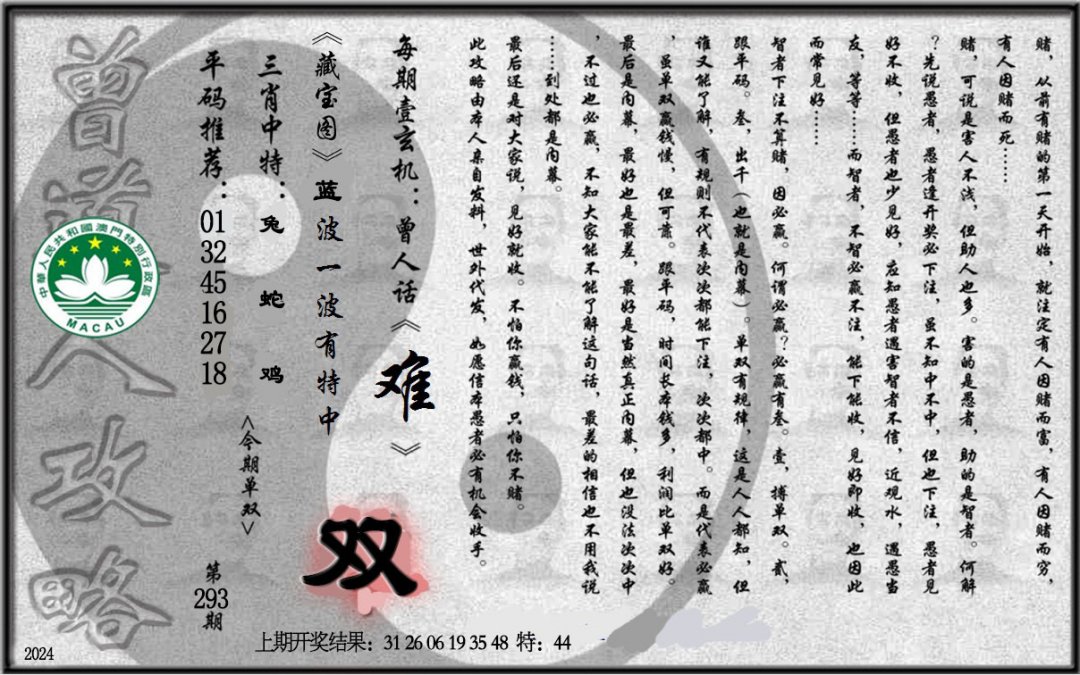 赌，从前有赌的第一天开始，就注定有人因赌而富，有人因赌而穷，
有人因赌而死……
赌，可说是害人不浅，但助人也多。害的是愚者，助的是智者。何解
？先说愚者，愚者逢开奖必下注，虽不知中不中，但也下注，愚者见
好不收，但愚者也少见好，应知愚者遇害智者不信，近观水，遇愚当
友，等等……而智者，不智必赢不注，能下能收，见好即收，也因此
而常见好……
智者下注不算赌，因必赢。何谓必赢？必赢有叁。壹，搏单双。贰，
跟平码。叁，出千（也就是内幕）。单双有规律，这是人人都知，但
谁又能了解，有规则不代表次次都能下注，次次都中。而是代表必赢
，虽单双赢钱慢，但可靠。跟平码，时间长本钱多，利润比单双好。
最后是内幕，最好也是最差，最好是当然真正内幕，但也没法次次中
，不过也必赢，不知大家能不能了解这句话，最差的相信也不用我说
……到处都是内幕。
最后还是对大家说，见好就收。不怕你赢钱，只怕你不赌。
此攻略由本人亲自发料，世外代发，如愿信本愚者必有机会收手。
每期壹玄机：曾人话《难》
《藏宝图》蓝波一波有特中
双
三肖中特：兔 蛇 鸡
<今期单双>
平码推荐：01 32 45 16 27 18
第293期
曾道人攻略
中華人民共和國澳門特別行政區
MACAU
上期开奖结果：31 26 06 19 35 48 特：44
2024